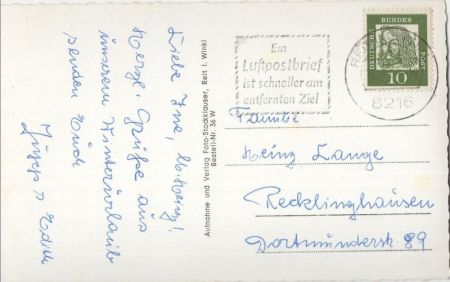 Liebe Ine, u. Heinz!
Herzl. Grüße aus
unserem Winterurlaub
senden Euch
Jupp u Edith
Aufnahme und Verlag Foto-Stocklauser, Reit i. Winkl
Bestell-Nr. 36 W
Ein
Luftpostbrief
ist schneller am
entfernten Ziel
DEUTSCHE BUNDESPOST
10
8216
Familie
Heinz Lange
Recklinghausen
Dortmunderstr. 89